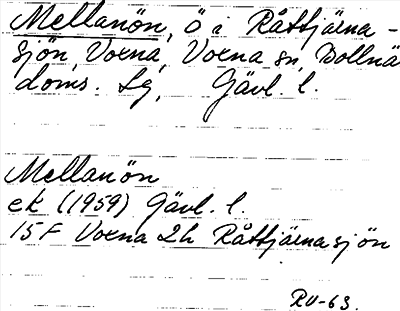 Mellanön, ö i Råttjärna-
sjön, Voxna, Voxna sn, Bollnä
doms. Lg, Gävl. l.
Mellanön
ek (1959) Gävl. l.
15F Voxna 2h Råttjärnasjön
RU-63.